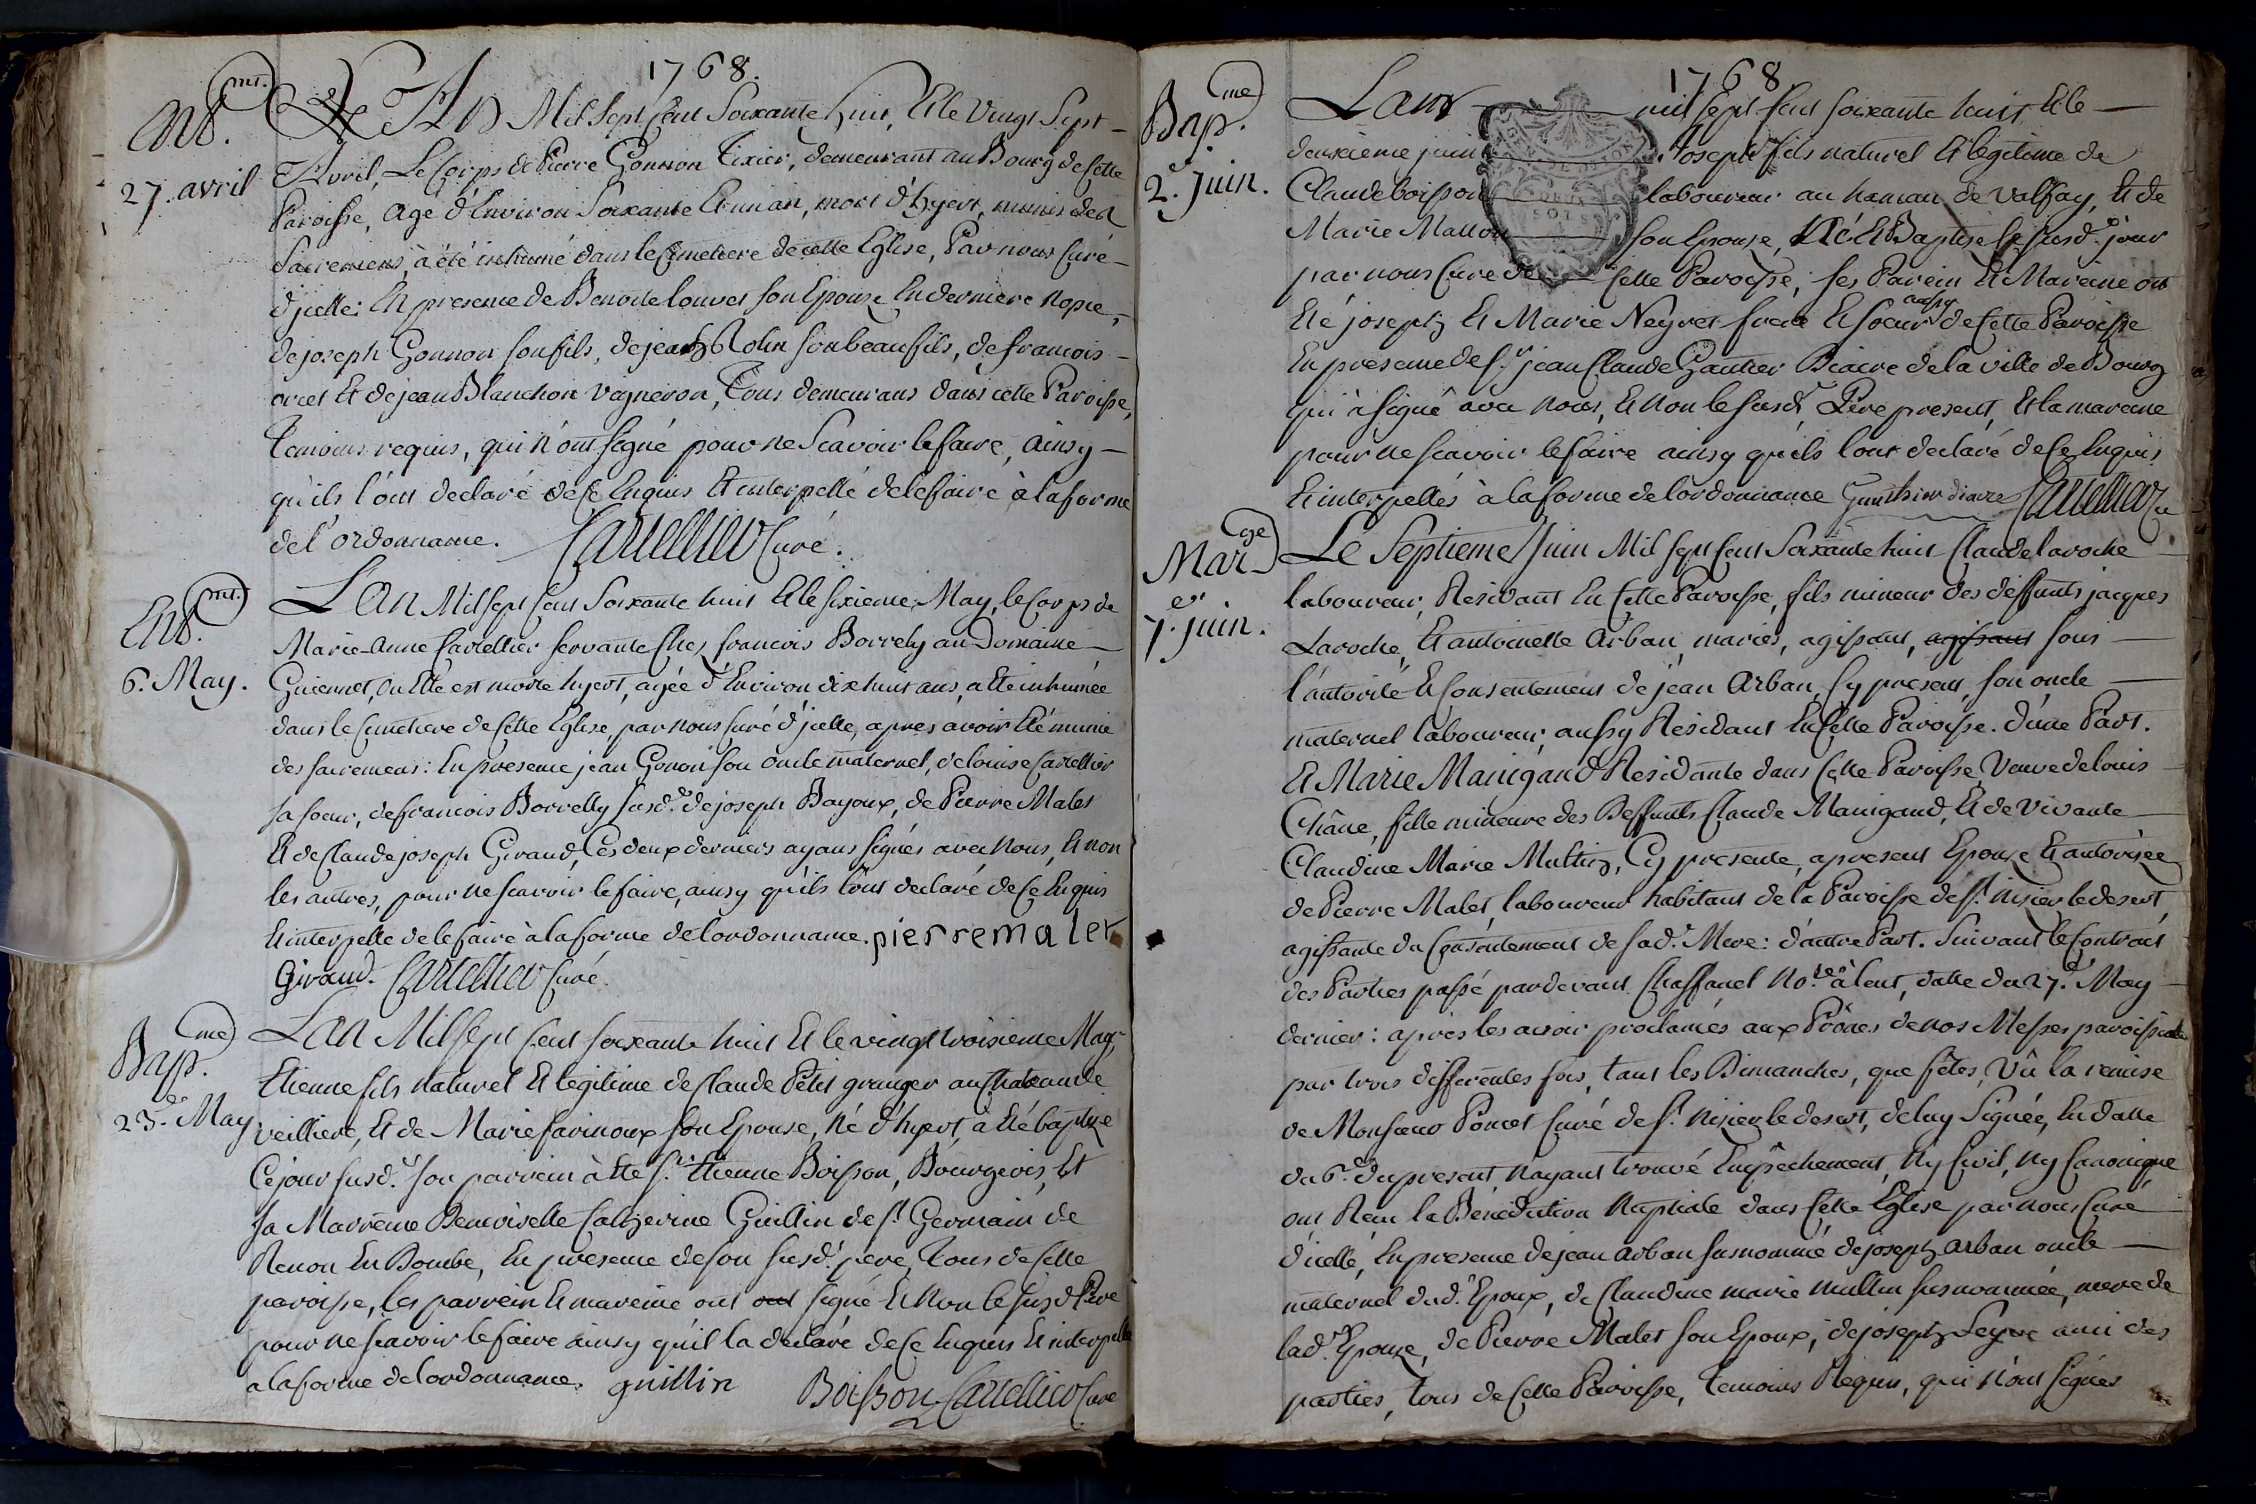 1768.
Ent.mt
27. avril
L'An Mil Sept Cent Soixante huit, Et le Vingt Sept
Avril, Le Corps de Pierre Gonnon Tixier, demeurant au Bourg de Cette
Paroisse, Agé d'Environ Soixante Et un an, mort d'hyert, munis des
Sacremens, à été inhumé dans le Cimetiere de cette Eglise, Par nous Curé
d'jcelle: En presence de Benoite louvet son Epouse En derniere nopce,
de joseph Gonnon son fils, de jean Rolin son beau fils, de francois
orcet Et de jean Blanchon vagneron, Tous demeurans dans cette Paroisse,
Temoins requis, qui n'ont signé pour ne Scavoir le faire, ainsy
qu'ils l'ont declaré de ce Enquis Et interpellé de le faire à la forme
de l'ordonnance. Cartellier Curé.
Ent.mt
6. May.
L'An Mil sept Cent Soixante huit Et le sixieme May, le Corps de
Marie-Anne Cartellier servante Ches francois Borrely au Domaine
Guiennet, ou Elle est morte hyert, agée d'Environ dix huit ans, a Eté inhumée
dans le Cimetiere de Cette Eglise, par nous Curé d'jcelle, apres avoir Eté munie
des sacremens: En presence jean Gonon son oncle maternel, de louise Cartellier
sa soeur, de francois Borrelly susd.t de joseph Bayoux, de Pierre Malet
Et de Claude joseph Giraud, Ces deux derniers ayans signés avec Nous, Et non
les autres, pour ne scavoir le faire, ainsy qu'ils l'ont declaré de Ce Enquis
Et interpellé de le faire à la forme de l'ordonnance. pierre malet
Giraud. Cartellier Curé.
Bap.me
23.e May
L'An Mil sept Cent soixante huit Et le vingt troisieme May,
Etienne fils naturel Et legitime de Claude Petit granger au Chateau de
veilliere, Et de Marie farinoux son Epouse, né d'hyert, à Eté baptizé
Ce jour susd.t son parrein à Eté s.r Etienne Boisson, Bourgeois, Et
sa Marreine Demoiselle Catherine Guillin de s.t Germain de
Renon En Bombe, En presence de son susd.t pere, Tous de Cette
paroisse, les parrein Et mareine ont ont signé Et Non le susd Pere
pour ne scavoir le faire ainsy qu'il la declaré de Ce Enquis Et interpellé
a la forme de lordonnance. guillin Boisson Cartellier Curé
1768
Bap.me
2.e Juin.
Lan mil sept Cent soixante huit, Et le
deuxieme juin Joseph fils naturel Et legitime de
Claude boisson laboureur au hamau de Valfay, Et de
Marie Mallon son Epouse, Né Et Baptisé le susd.t jour
par nous Curé de Cette Paroisse; ses Parein Et Mareine ont
Eté joseph Et Marie Neyret frere Et soeur aussy de Cette Paroisse
En presence de s.r jean Claude Gautier Diacre de la ville de Bourg
qui à signé avec Nous, Et Non le susd.t Pere present, Et la mareine
pour ne scavoir le faire ainsy qu'ils l'ont declaré de Ce Enquis
Et interpellés à la forme de lordonnance Gauthier diacre Cartellier Cu
Mar.ge
7.e juin.
Le Septieme Juin Mil sept Cent Soixante huit Claude laroche
laboureur, Residant En Cette Paroisse, fils mineur des deffunts jacques
Laroche, Et antoinette Arban, mariés, agissant, agissant sous
l'autorité Et Consentement de jean Arban, Cy present, son oncle
maternel laboureur, aussy Residant En Cette Paroisse. d'une Part.
Et Marie Manigand Residante dans Cette Paroisse, Veuve de louis
Châne, fille mineure des Deffunts Claude Manigand, Et de vivante
Claudine Marie Multin, Cy presente, apresent Epouse Et autorizée
de Pierre Malet, laboureur habitant de la Paroisse de s.t Nisier le desert,
agissante du Consentement de sad.e Mere: d'autre Part. Suivant le Contract
des Parties passé pardevant Chaffanel No.re à lent, datte du 27.e May
dernier: apres les avoir proclamés aux Prônes de nos Messes paroissiales
par trois differentes fois, tant les Dimanches, que fêtes, Vû la remise
de Monsieur Poncet Curé de s.t Nisier le desert, de luy Signée, En datte
du 6.e du present, N'ayant trouvé Empêchement, Ny Civil, Ny Canonique
ont Receu la Benediction Nuptiale dans Cette Eglise par nous Curé
d'icelle, En presence de jean Arban susnommé de joseph Arban oncle
maternel dud.t Epoux, de Claudine marie multin susnommée, mere de
lad.e Epouse, de Pierre Malet son Epoux, de joseph Seyve ami des
parties, tous de Cette Paroisse, Temoins Requis, qui n'ont signés